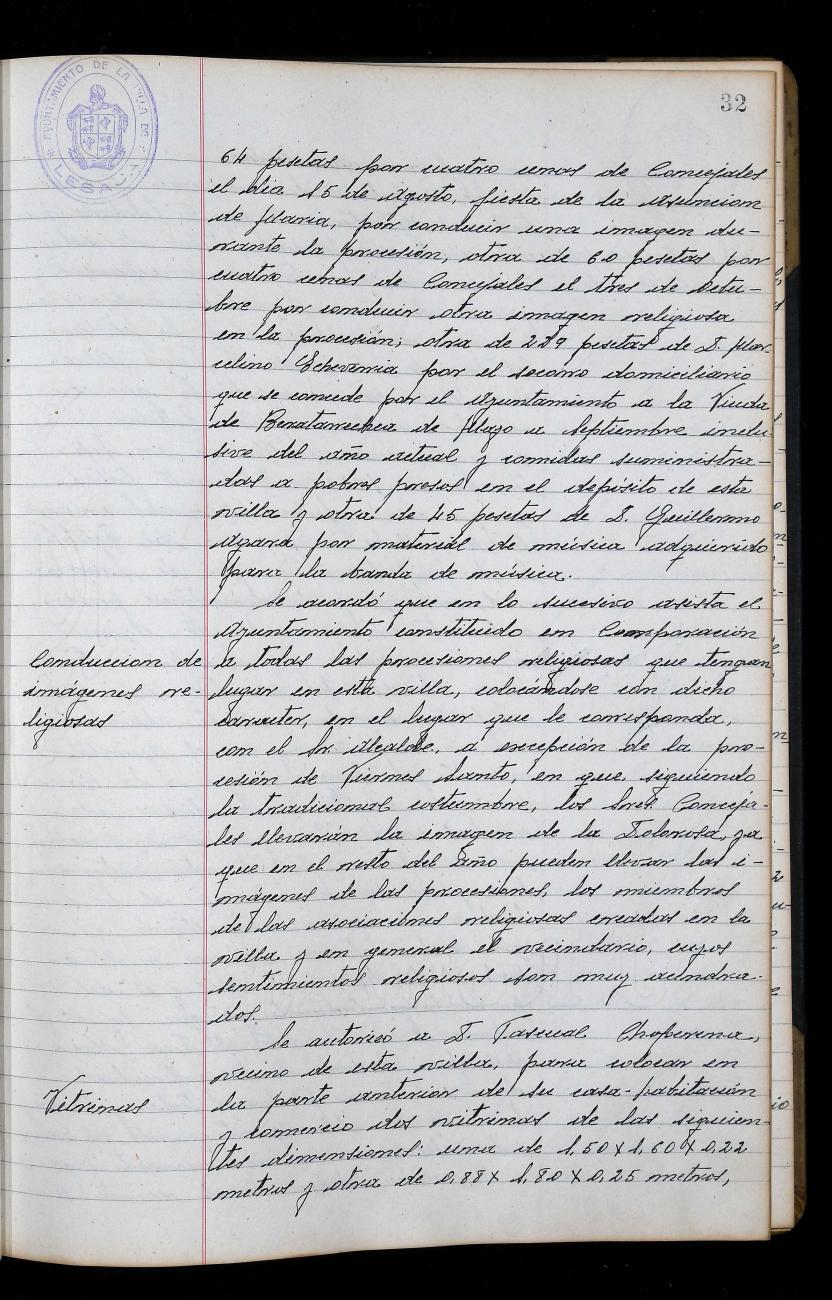 AYUNTAMIENTO DE LA VILLA DE
LESACA
32
64 pesetas por cuatro cenas de Concejales
el dia 15 de Agosto, fiesta de la Asuncion
de Maria, por conducir una imagen du-
rante la procesión, otra de 60 pesetas por
cuatro cenas de Concejales el tres de Octu-
bre por conducir otra imagen religiosa
en la procesión; otra de 229 pesetas de D. Mar-
celino Echeverria por el socorro domiciliario
que se concede por el Ayuntamiento a la Viuda
de de Mayo a Septiembre inclu-
sive del año actual y comidas suministra-
das a pobres presos en el depósito de esta
villa y otra de 45 pesetas de D. Guillermo
Apara por material de música adquirido
para la banda de música.
Se acordó que en lo sucesivo asista el
Ayuntamiento constituido em Comporación
Conduccion de
imágenes re-
ligiosas
a todas las procesiones religiosas que tengan
lugar en esta villa, colocándose con dicho
caracter, en el lugar que le corresponda,
con el Sr. Alcalde, a excepción de la pro-
cesión de Viernes Santo, en que, siguiendo
la tradicional costumbre, los Sres. Conceja-
les llevarán la imagen de la Dolorosa, ya
que en el resto del año pueden llevar las i-
mágenes de las procesiones, los miembros
de las asociaciones religiosas creadas en la
villa y en general el vecindario, cuyos
sentimientos religiosos son muy acendra-
dos.
Se autorizó a D. Pascual Choperena,
vecino de esta villa, para colocar en
Vitrinas
la parte anterior de su casa-habitación
y comercio dos vitrinas de las siguien-
tes dimensiones: una de 1,50 X 1,60 X 0,22
metros y otra de 0,88 X 1,80 X 0,25 metros,